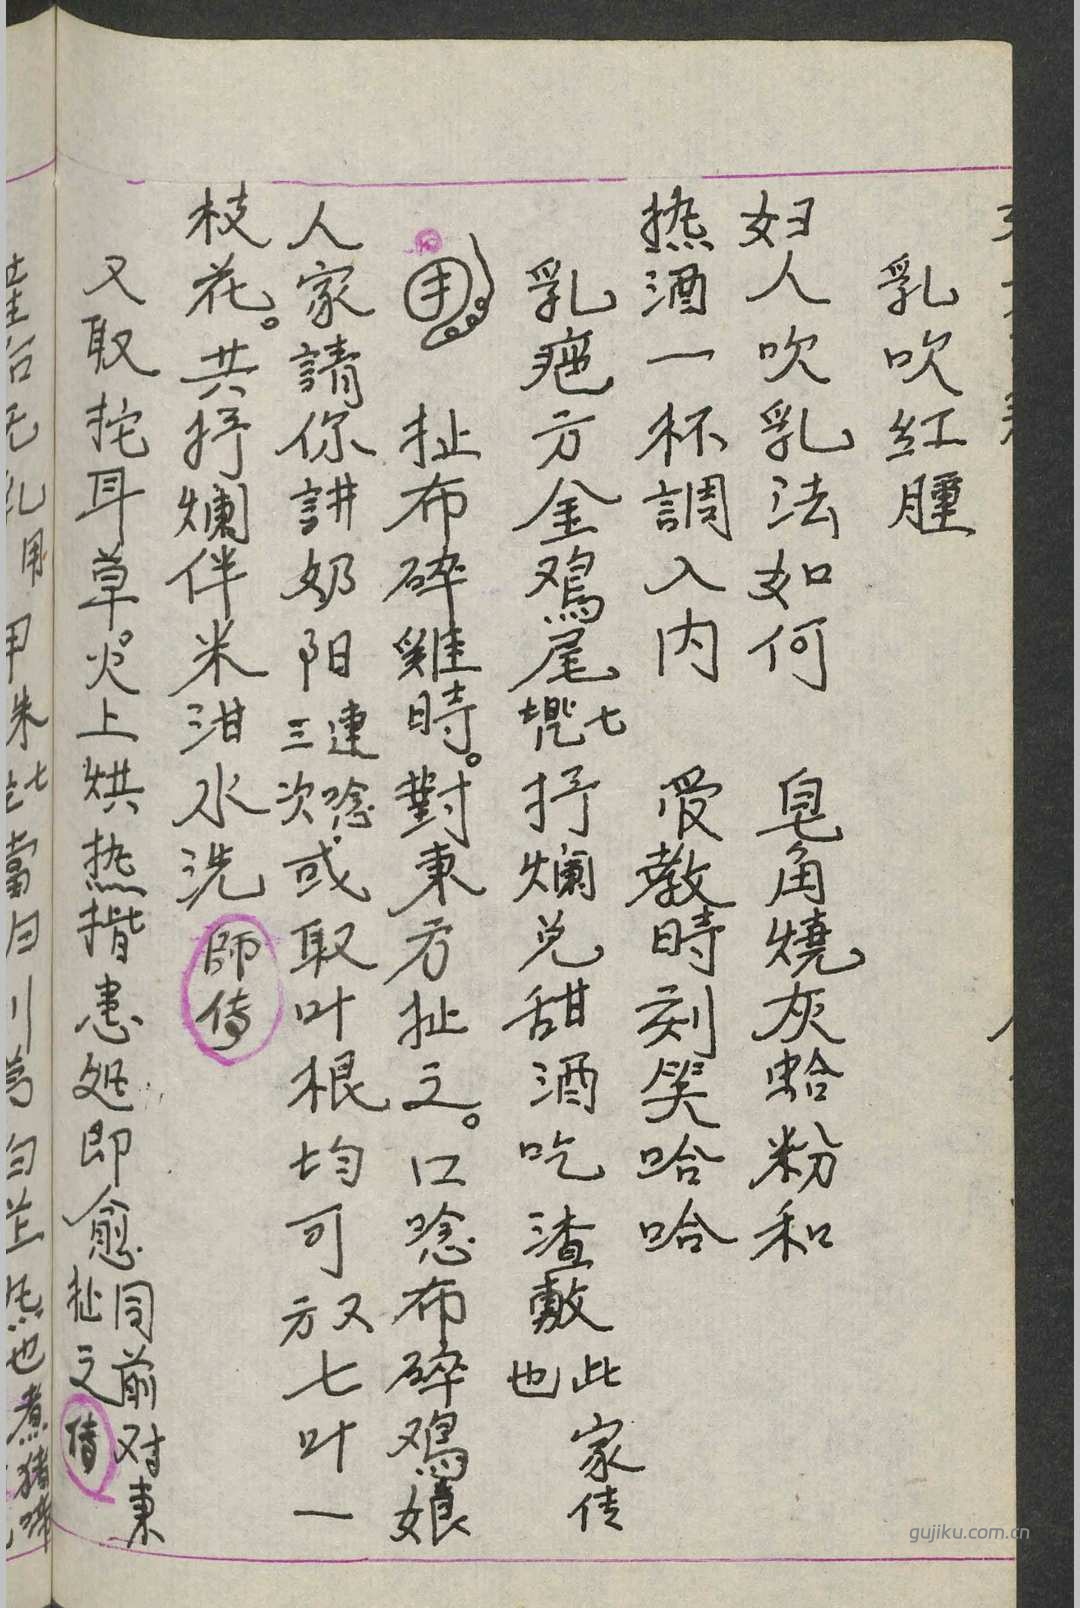 乳吹红腫
妇人吹乳法如何 皂角燒灰蛤粉和
热酒一杯調入内 受教時刻笑哈哈
乳疤方金鸡尾七蔸抒爛兑甜酒吃渣敷也此家传
扯布碎雞時。對東方扯之。口唸布碎鸡娘
人家請你讲奶阳連唸三次。或取叶根均可又方七叶一
枝花。共抒爛伴米泔水洗師传
又取挓耳草。火上烘热揩患処即愈同前对東扯之传
gujiku.com.cn